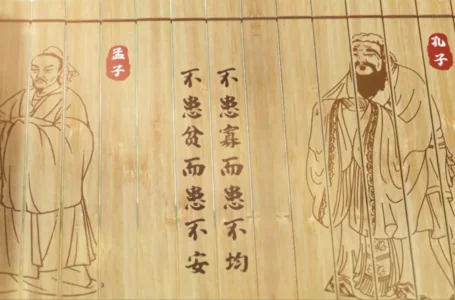 孔子
不患寡而患不均
不患贫而患不安
孟子